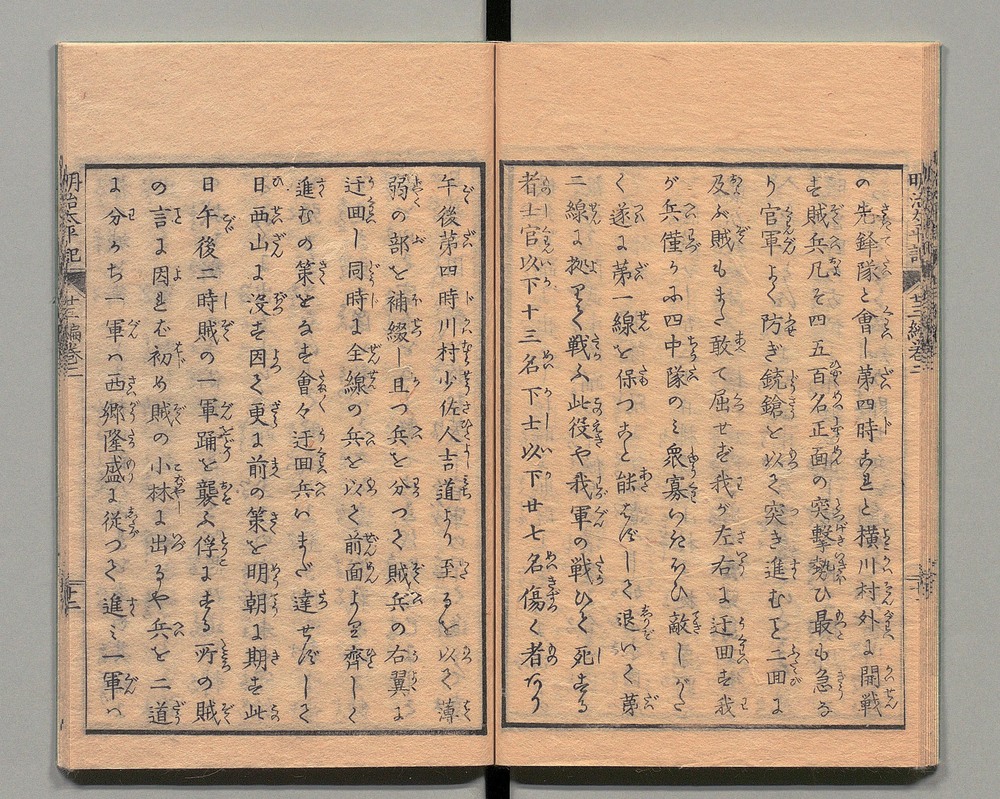 明治太平記
廿三編巻二
の先鋒隊と會し第四時これと横川村外に開戦
す賊兵凡そ四五百名正面の突撃勢ひ最も急な
り官軍よく防ぎ銃鎗を以て突き進むこと二回に
及ぶ賊もまた敢て屈せず我が左右に迂回す我
が兵僅かに四中隊のミ衆寡いきほひ敵しがた
く遂に第一線を保つこと能はずして退いて第
二線に拠りて戦ふ此役や我軍の戦ひて死する
者士官以下十三名下士以下廿七名傷く者あり
午後第四時川村少佐人吉道より至るを以て薄
弱の部を補綴し且つ兵を分つて賊兵の右翼に
迂回し同時に全線の兵を以て前面より齊しく
進むの策をなす會々迂回兵いまだ達せずして
日西山に没す因て更に前の策を明朝に期す此
日午後二時賊の一軍踊を襲ふ俘にする所の賊
の言に因れバ初め賊の小林に出るや兵を二道
に分かち一軍ハ西郷隆盛に従つて進ミ一軍ハ
明治太平記
廿三編巻二
十二